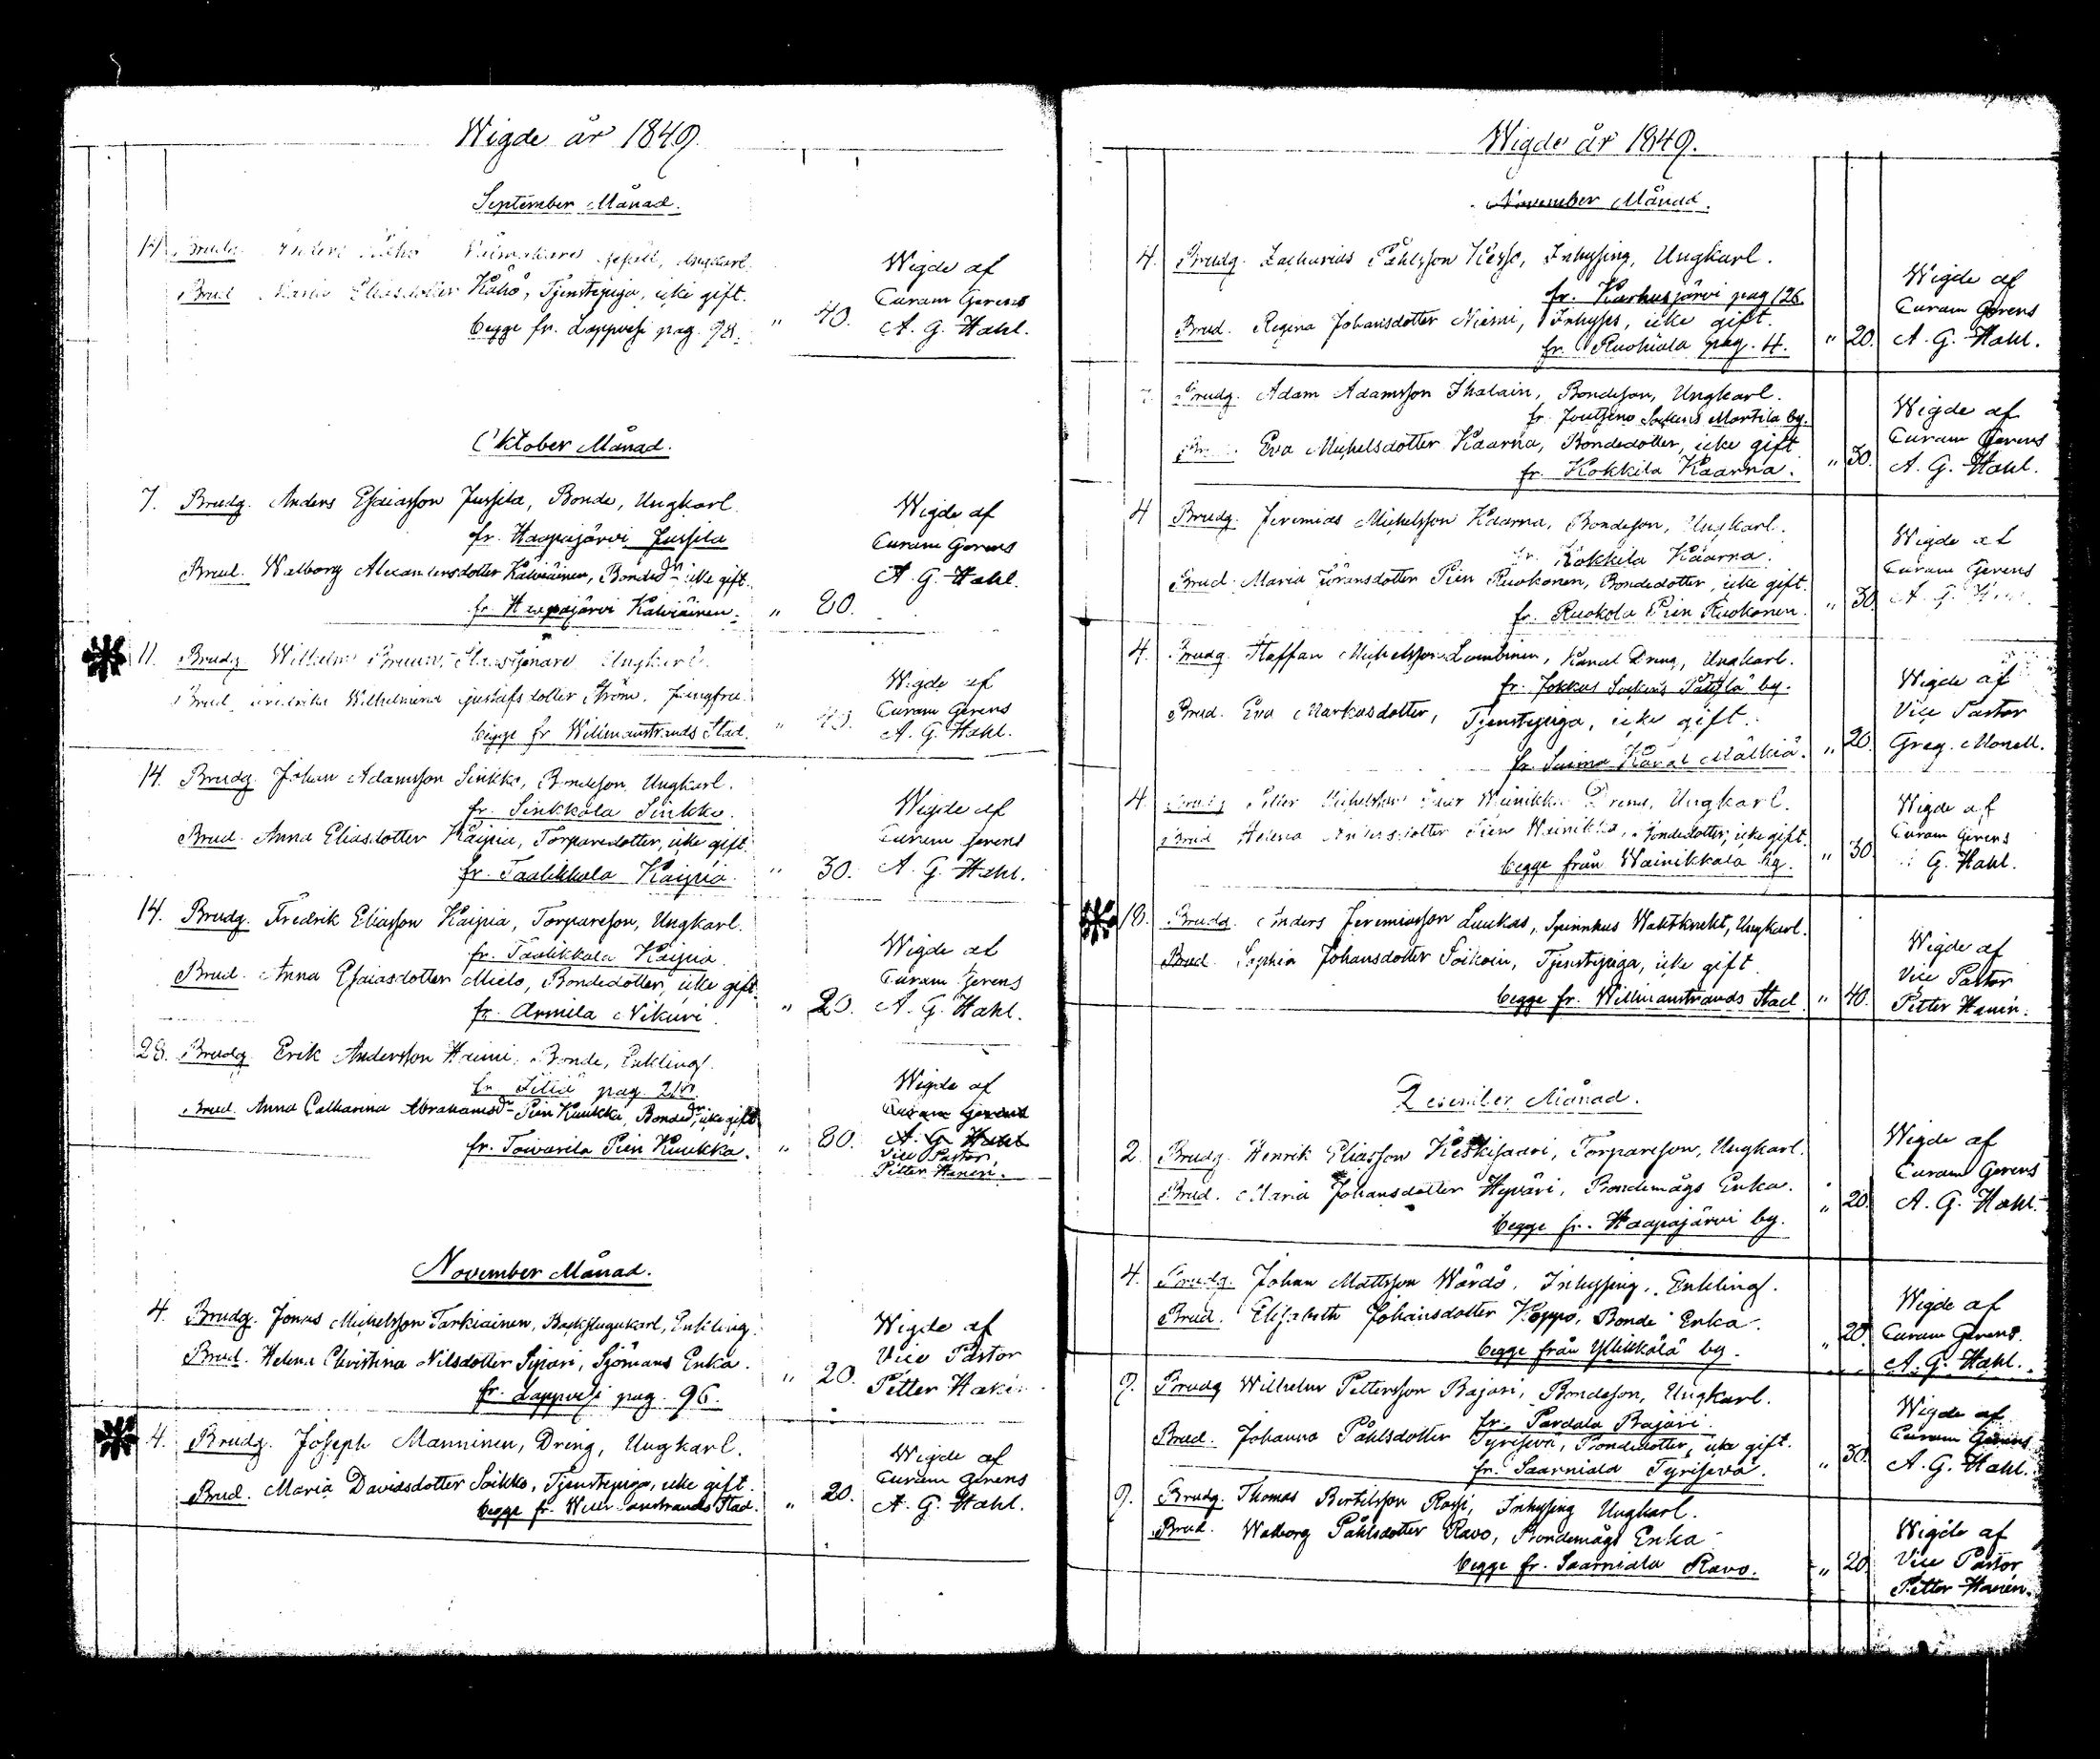 Wigde år 1849.
September Månad.
Brudg. Anders Kähö Ungkarl.
Brud Maria Eliasdotter Kähö, Tjenstepiga, icke gift.
begge fr. Lappvesi pag. 98. " 40.
Wigde af
Curam Gerens
A. G. Hahl.
Oktober Månad.
7. Brudg. Anders Esaiasson Jussila, Bonde, Ungkarl
fr. Haapajärvi Jussila
Brud. Walborg Alexandersdotter Kälviäinen, Bonded:r icke gift.
fr. Haapajärvi Kälviäinen. " 80.
Wigde af
Curam Gerens
A. G. Hahl.
11. Brudg Wilhelm Ungkarl.
Brud Fredrika Wilhelmina Gustafsdotter Ström, Jungfru.
begge fr Willmanstrands Stad. " 40.
Wigde af
Curam Gerens
A. G. Hahl.
14. Brudg. Johan Adamsson Sinkko, Bondeson, Ungkarl.
fr. Sinkkola Sinkko.
Brud. Anna Eliasdotter Kaipia, Torparedotter, icke gift.
fr. Taalikkala Kaipia. " 30.
Wigde af
Curam Gerens
A. G. Hahl.
14. Brudg. Fredrik Eliasson Kaipia, Torpareson, Ungkarl.
fr. Taalikkala Kaipia
Brud. Anna Esaiasdotter Mielo, Bondedotter, icke gift.
fr. Armila Nikuri. " 20.
Wigde af
Curam Gerens
A. G. Hahl.
28. Brudg. Erik Andersson Heimi, Bonde, Enkling.
fr. pag.
Brud. Anna Catharina Abrahamsdr Pien Kuukka, Bonded:r, icke gift
fr. Toivarila Pien Kuukka. " 80.
Wigde af
Curam Gerens
A. G. Hahl
Vice Pastor
Petter Hanén.
November Månad.
4. Brudg. Jonas Michelsson Tarkiainen, Backstugukarl, Enkling.
Brud. Helena Christina Nilsdotter Sipari, Sjömans Enka.
fr. Lappvesi pag. 96. " 20.
Wigde af
Vice Pastor
Petter Hanén
4. Brudg. Joseph Manninen, Dreng, Ungkarl.
Brud. Maria Davidsdotter Soikko, Tjenstepiga, icke gift.
begge fr. Willmanstrands Stad. " 20.
Wigde af
Curam Gerens
A. G. Hahl.
Wigde år 1849.
November Månad.
4. Brudg. Zacharias Påhlsson Kesse, Inhysing, Ungkarl.
fr. Karhusjärvi pag 126.
Brud. Regina Johansdotter Niemi, Inhyses, icke gift.
fr. Ruohiala pag. 4. " 20.
Wigde af
Curam Gerens
A. G. Hahl.
Brudg. Adam Adamsson Ihalain, Bondeson, Ungkarl.
fr. Joutseno Sockens Martila by.
Eva Michelsdotter Kaarna, Bondedotter, icke gift
fr. Kokkila Kaarna. " 30.
Wigde af
Curam Gerens
A. G. Hahl.
4 Brudg. Jeremias Michelsson Kaarna, Bondeson, Ungkarl.
fr. Kokkila Kaarna.
Brud. Maria Göransdotter Pien Ruokonen, Bondedotter, icke gift.
fr. Ruokola Pien Ruokonen. " 30
Wigde af
Curam Gerens
A. G.
4. Brudg. Staffan Michelsson Lambinen, Kanal Dreng, Ungkarl.
fr. Jokkas Sockens by.
Brud. Eva Markusdotter, Tjenstepiga, icke gift.
fr. Saima Kanal Mälkiä. " 20.
Wigde af
Vice Pastor
Greg. Monell.
4. Brudg Petter Michelsson Suur Wainikka Dreng, Ungkarl.
Brud Helena Andersdotter Pien Wainikka, Bondedotter, icke gift.
begge från Wainikkala by. " 30
Wigde af
Curam Gerens
G. Hahl.
18. Brudg. Anders Jeremiasson Luukas, Spinnhus Waktknekt, Ungkarl.
Brud. Sophia Johansdotter Soikoin, Tjenstepiga, icke gift.
begge fr. Willmanstrands Stad " 40.
Wigde af
Vice Pastor
Petter Hanén.
December Månad.
2. Brudg. Henrik Eliasson Keskisaari, Torpareson, Ungkarl.
Brud. Maria Johansdotter Hyväri, Bondemågs Enka.
begge fr. Haapajärvi by. " 20.
Wigde af
Curam Gerens
A. G. Hahl.
4. Brudg. Johan Mattsson Wårdö, Inhysing, Enkling.
Brud. Elisabeth Johansdotter Koppo, Bonde Enka.
begge från Ylikkälä by. " 20.
Wigde af
Curam Gerens.
A. G. Hahl.
9. Brudg Wilhelm Pettersson Bajari, Bondeson, Ungkarl.
fr. Partala Bajari.
Brud. Johanna Påhlsdotter Tyrisevä, Bondedotter, icke gift.
fr. Saarniala Tyrisevä. " 30.
Wigde af
Curam Gerens
A. G. Hahl.
9. Brudg. Thomas Bertilsson Rossi, Inhysing Ungkarl.
Brud. Walborg Påhlsdotter Ravo, Bondemågs Enka
begge fr. Saarniala Ravo. " 20.
Wigde af
Vice Pastor
Petter Hanén.